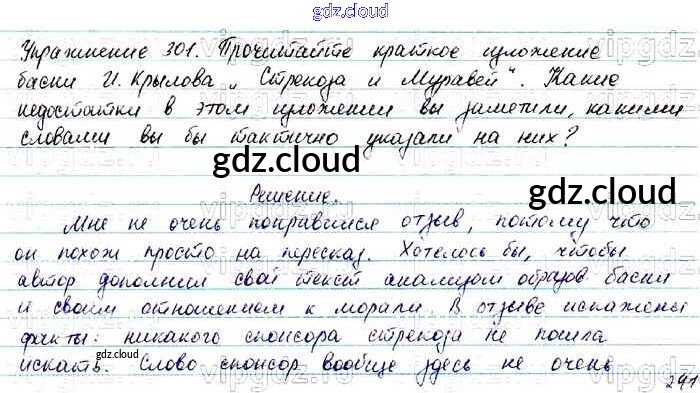 gdz.cloud
Упражнение 301. Прочитайте краткое изложение
басни И. Крылова „Стрекоза и Муравей“. Какие
недостатки в этом изложении вы заметили, какими
словами вы бы тактично указали на них?
gdz.cloud
Решение.
gdz.cloud
Мне не очень понравился отзыв, потому что
он похож просто на пересказ. Хотелось бы, чтобы
автор дополнил свой текст анализом образов басни
и своим отношением к морали. В отзыве искажены
факты: никакого спонсора стрекоза не пошла
gdz.cloud
искать. Слово спонсор вообще здесь не очень
241